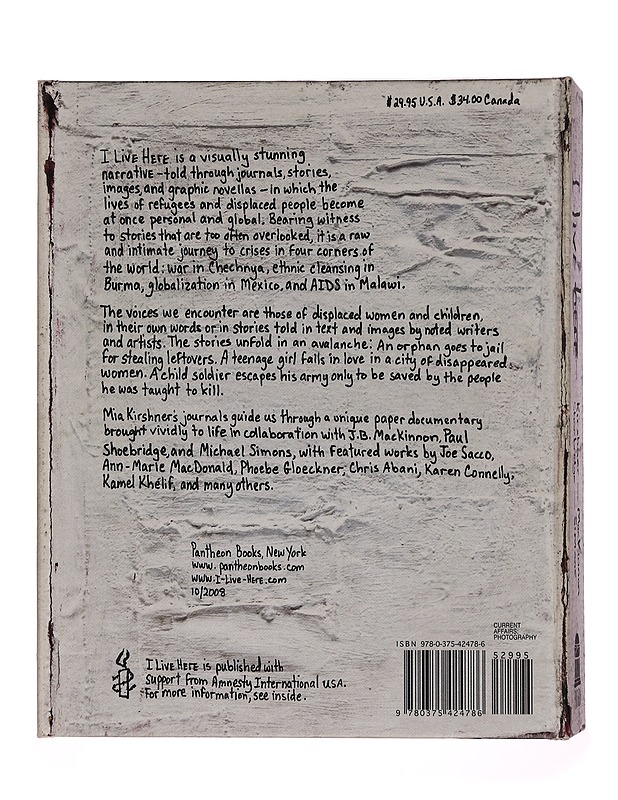 $29.95 U.S.A. $34.00 Canada
I LIVE HERE is a visually stunning
narrative – told through journals, stories,
images, and graphic novellas – in which the
lives of refugees and displaced people become
at once personal and global. Bearing witness
to stories that are too often overlooked, it is a raw
and intimate journey to crises in four corners of
the world: war in Chechnya, ethnic cleansing in
Burma, globalization in Mexico, and AIDS in Malawi.
The voices we encounter are those of displaced women and children,
in their own words or in stories told in text and images by noted writers
and artists. The stories unfold in an avalanche: An orphan goes to jail
for stealing leftovers. A teenage girl falls in love in a city of disappeared
women. A child soldier escapes his army only to be saved by the people
he was taught to kill.
Mia Kirshner's journals guide us through a unique paper documentary
brought vividly to life in collaboration with J.B. MacKinnon, Paul
Shoebridge, and Michael Simons, with featured works by Joe Sacco,
Ann-Marie MacDonald, Phoebe Gloeckner, Chris Abani, Karen Connelly,
Kamel Khélif, and many others.
Pantheon Books, New York
www.pantheonbooks.com
www.I-Live-Here.com
10/2008
CURRENT
AFFAIRS/
PHOTOGRAPHY
ISBN 978-0-375-42478-6
52995
9 780375 424786
I LIVE HERE is published with
support from Amnesty International USA.
For more information, see inside.